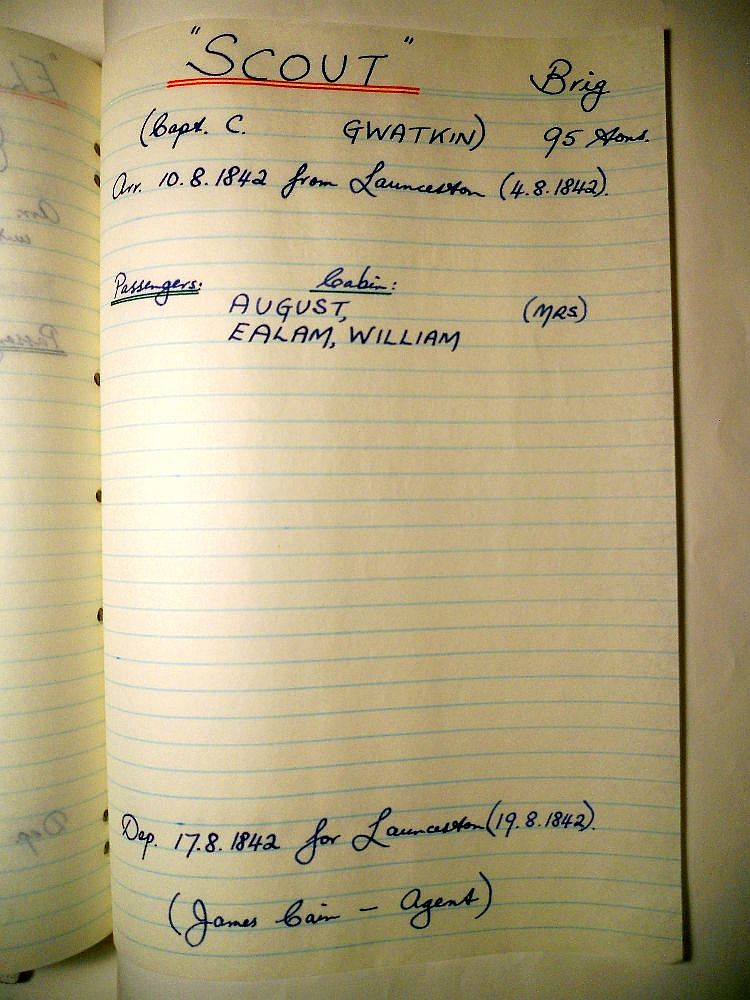 "SCOUT" Brig
(Capt. C. GWATKIN) 95 tons.
Arr. 10.8.1842 from Launceston (4.8.1842).
Passengers: Cabin:
AUGUST, (MRS)
EALAM, WILLIAM
Dep. 17.8.1842 for Launceston (19.8.1842).
(James Cain - Agent)